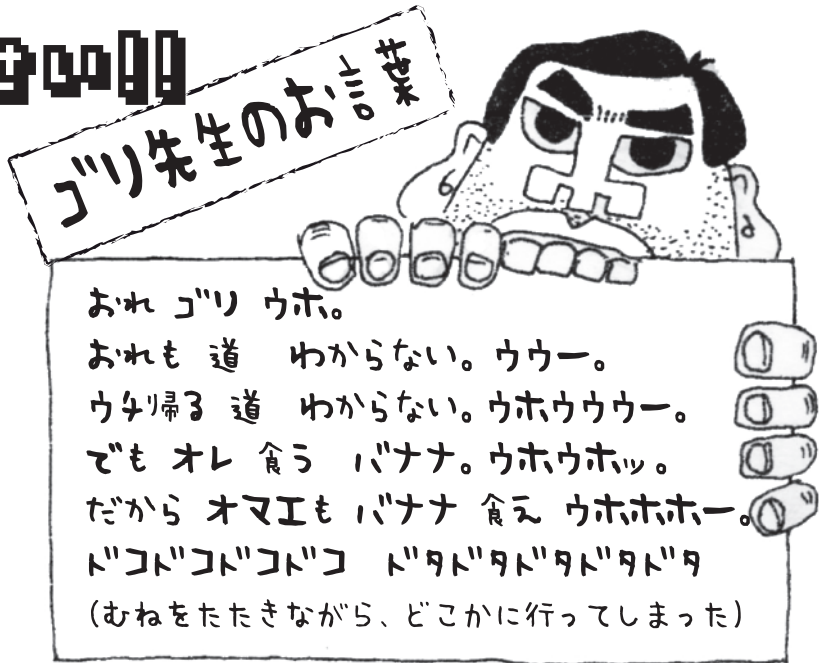 ゴリ先生のお言葉
おれ ゴリ ウホ。
おれも 道 わからない。ウウー。
ウチ帰る 道 わからない。ウホウウウー。
でも オレ 食う バナナ。ウホウホッ。
だから オマエも バナナ 食え ウホホホホー。
ドコドコドコドコ ドタドタドタドタドタ
(むねをたたきながら、どこかに行ってしまった)